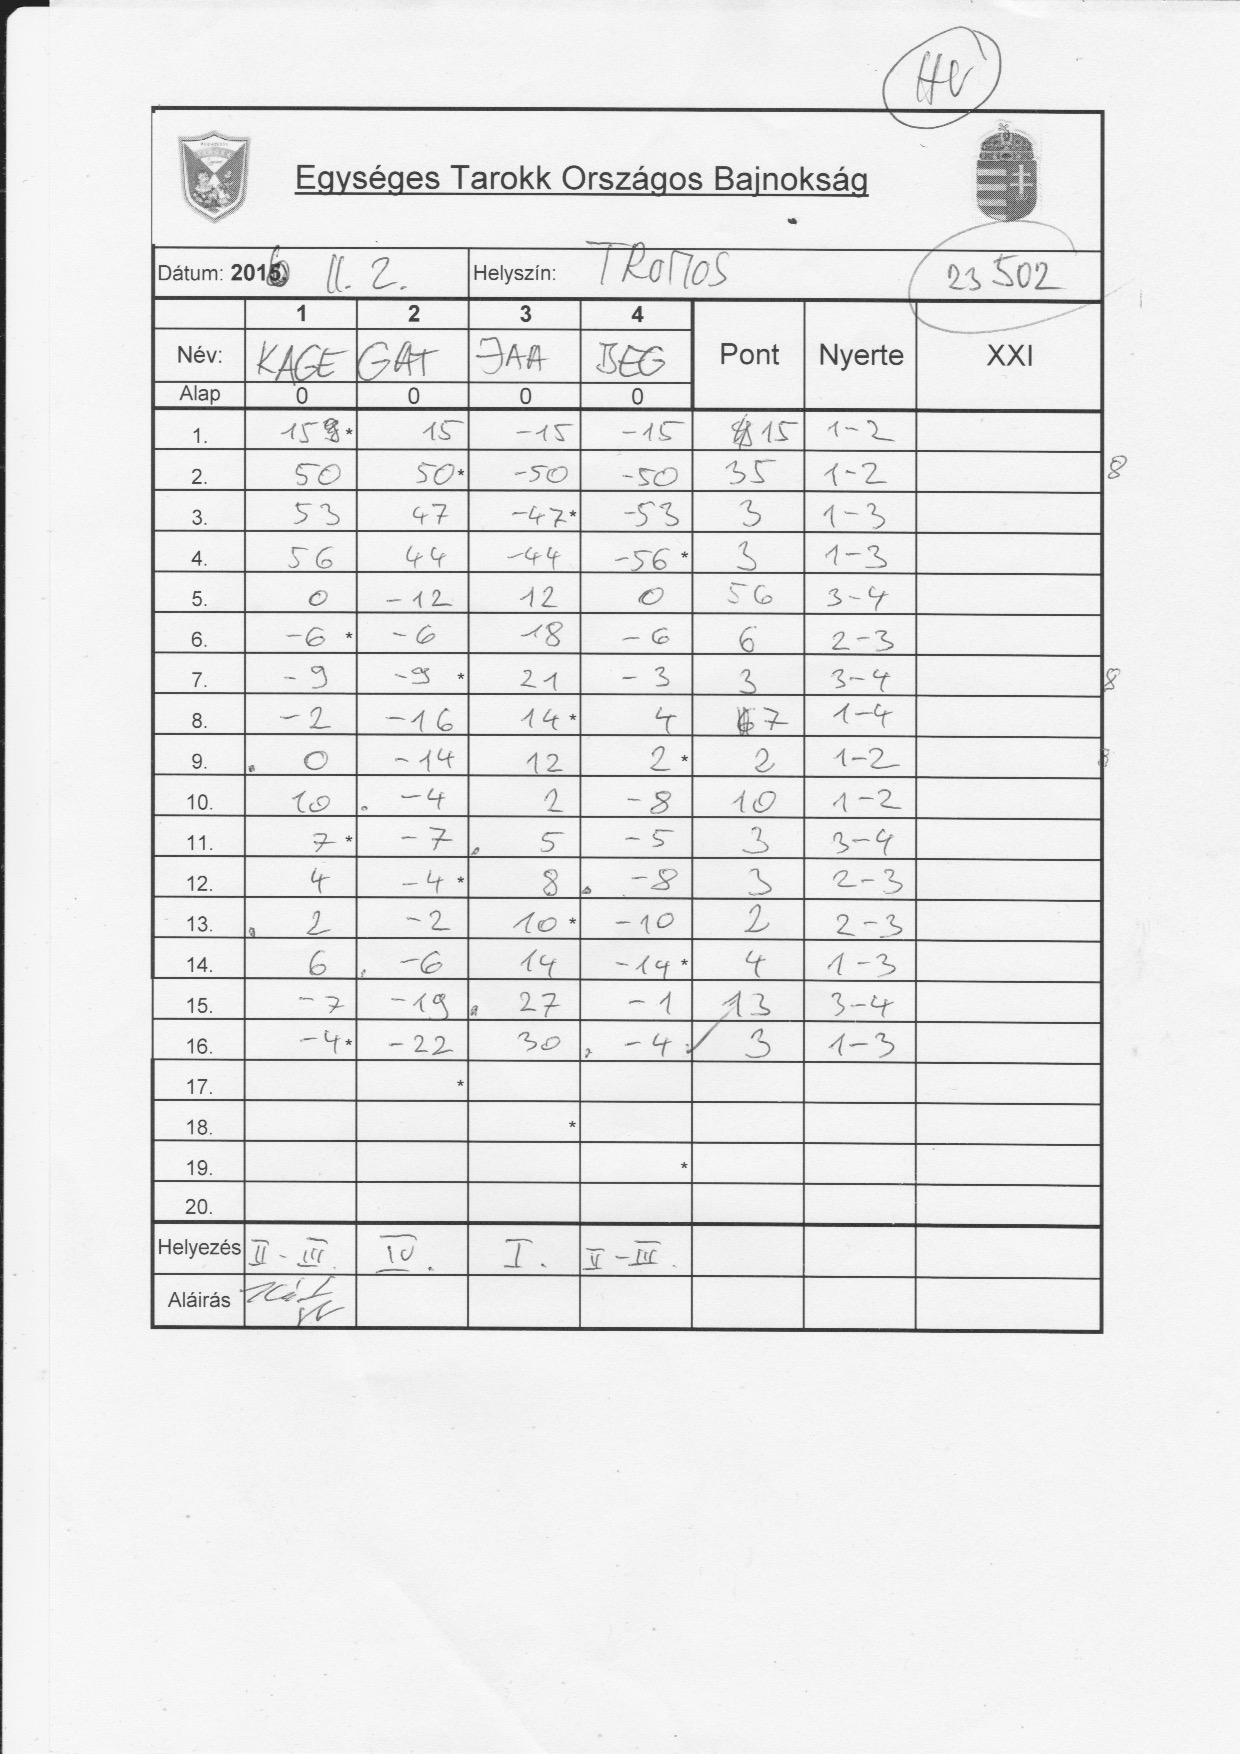 HV
Egységes Tarokk Országos Bajnokság
Dátum: 2016. II. 2. Helyszín: TROMOS 23502
1 2 3 4
Név: KAGE GAT JAA BEG Pont Nyerte XXI
Alap 0 0 0 0
1. 15 * 15 -15 -15 15 1-2
2. 50 50* -50 -50 35 1-2 8
3. 53 47 -47* -53 3 1-3
4. 56 44 -44 -56* 3 1-3
5. 0 -12 12 0 56 3-4
6. -6 * -6 18 -6 6 2-3
7. -9 -9 * 21 -3 3 3-4 8
8. -2 -16 14* 4 7 1-4
9. . 0 -14 12 2* 2 1-2 8
10. 10 . -4 2 -8 10 1-2
11. 7* -7 . 5 -5 3 3-4
12. 4 -4* 8 . -8 3 2-3
13. . 2 -2 10* -10 2 2-3
14. 6 . -6 14 -14* 4 1-3
15. -7 -19 . 27 -1 13 3-4
16. -4* -22 30 . -4 3 1-3
17. *
18. *
19. *
20.
Helyezés II-III. IV. I. II-III.
Aláirás